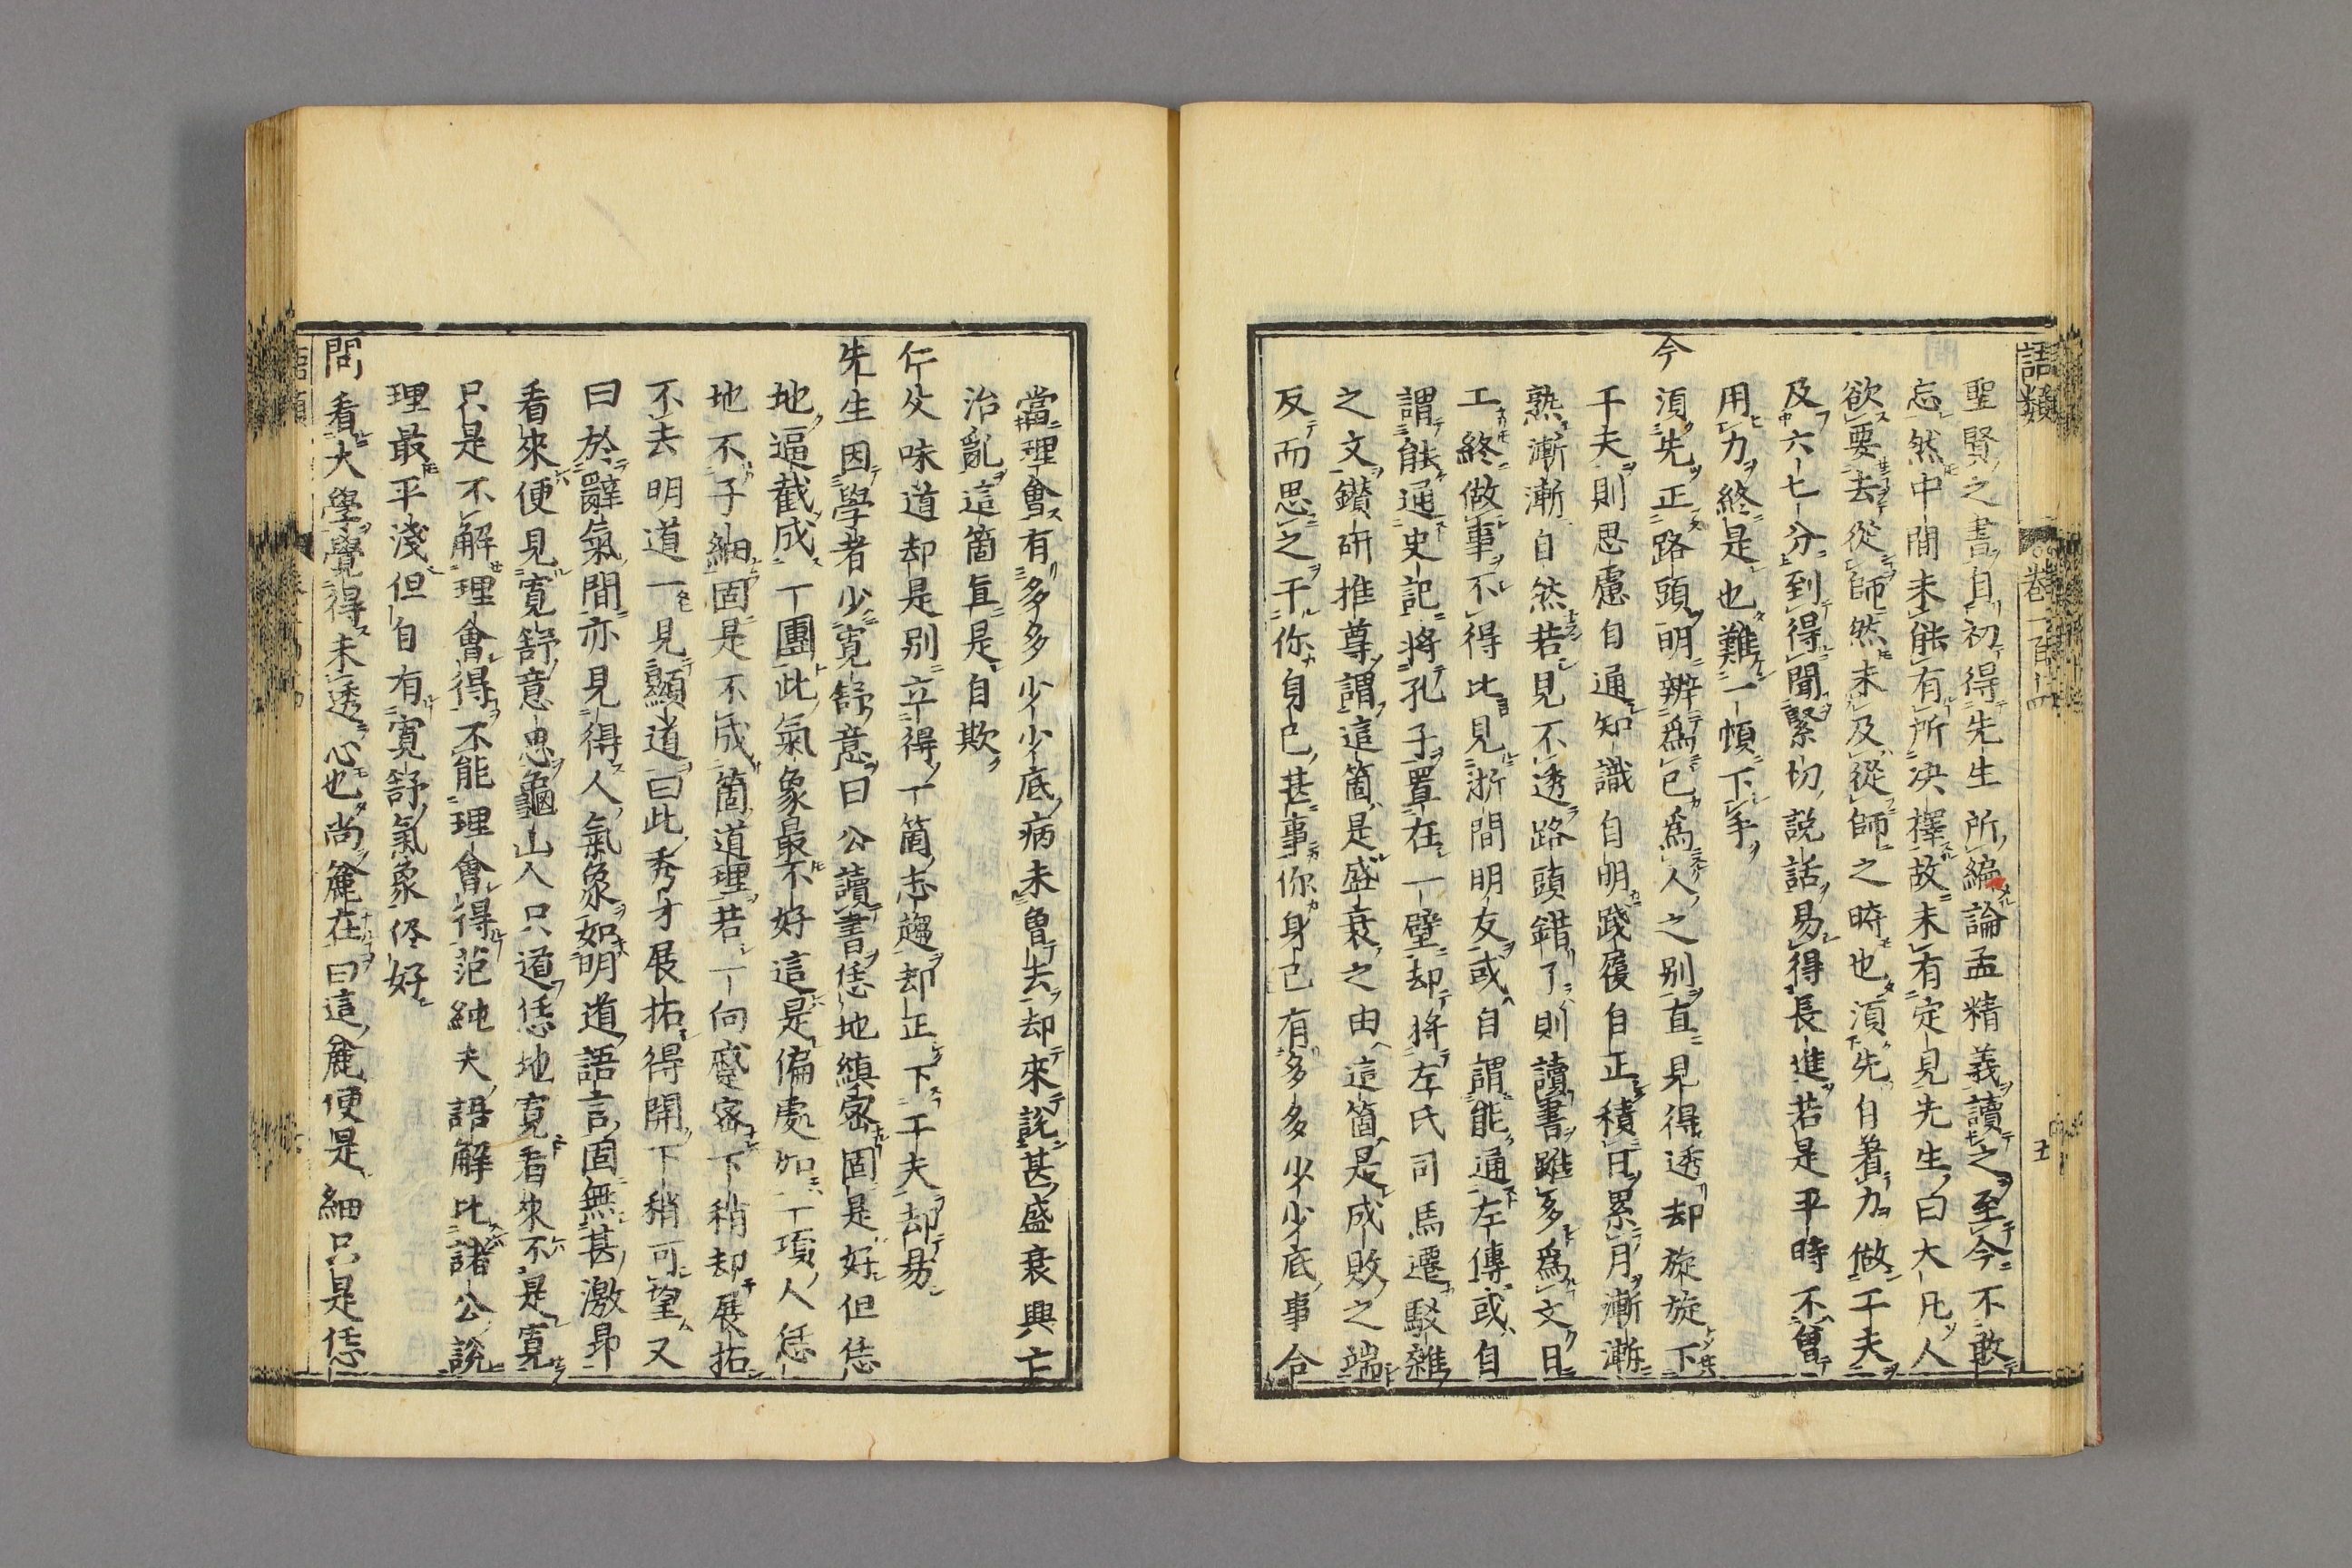 語類 卷一百十四 五
聖賢之書自初得先生所編論孟精義讀之至今不敢
忘然中間未能有所決擇故未有定見先生曰大凡人
欲要去從師然未及從師之時也須先自著力做工夫
及六七分到得聞緊切說話易得長進若是平時不曾
用力終是也難一頓下手
今須先正路頭明辨爲己爲人之別直見得透却旋旋下
工夫則思慮自通知識自明踐履自正積日累月漸漸
熟漸漸自然若見不透路頭錯了則讀書雖多爲文日
工終做事不得比見浙間朋友或自謂能通左傳或自
謂能通史記將孔子置在一壁却將左氏司馬遷駁雜
之文鑚研推尊謂這箇是盛衰之由這箇是成敗之端
反而思之干你身己甚事你身己有多多少少底事合
當理會有多多少少底病未曾去却來說甚盛衰興亡
治亂這箇直是自欺
仁父味道却是別立得一箇志趨却正下工夫却易
先生因學者少寬舒意曰公讀書恁地縝密固是好但恁
地逼截成一團此氣象最不好這是偏處如一項人恁
地不子細固是不成箇道理若一向蹙密下稍却展拓
不去明道一見顯道曰此秀才展拓得開下稍可望又
曰於辭氣間亦見得人氣象如明道語言固無甚激昂
看來便見寬舒意思龜山人只道恁地寬看來不是寬
只是不解理會得不能理會得范純夫語解比諸公說
理最平淺但自有寬舒氣象佟好
問看大學覺得未透心也尚麄在曰這麄便是細只是恁